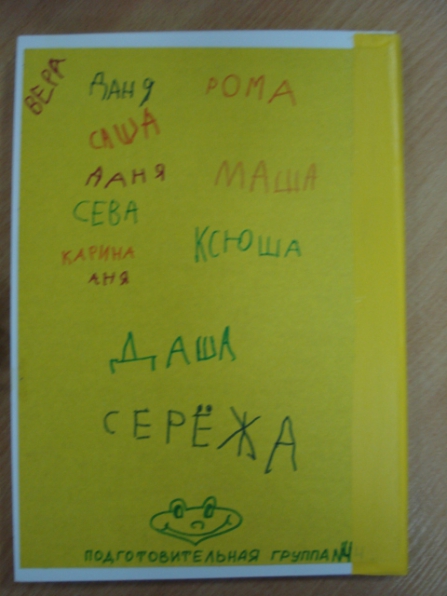 ВЕРА
ДАНЯ РОМА
САША
ДАНЯ МАША
СЕВА
КСЮША
КАРИНА
АНЯ
ДАША
СЕРЁЖА
ПОДГОТОВИТЕЛЬНАЯ ГРУППА №4